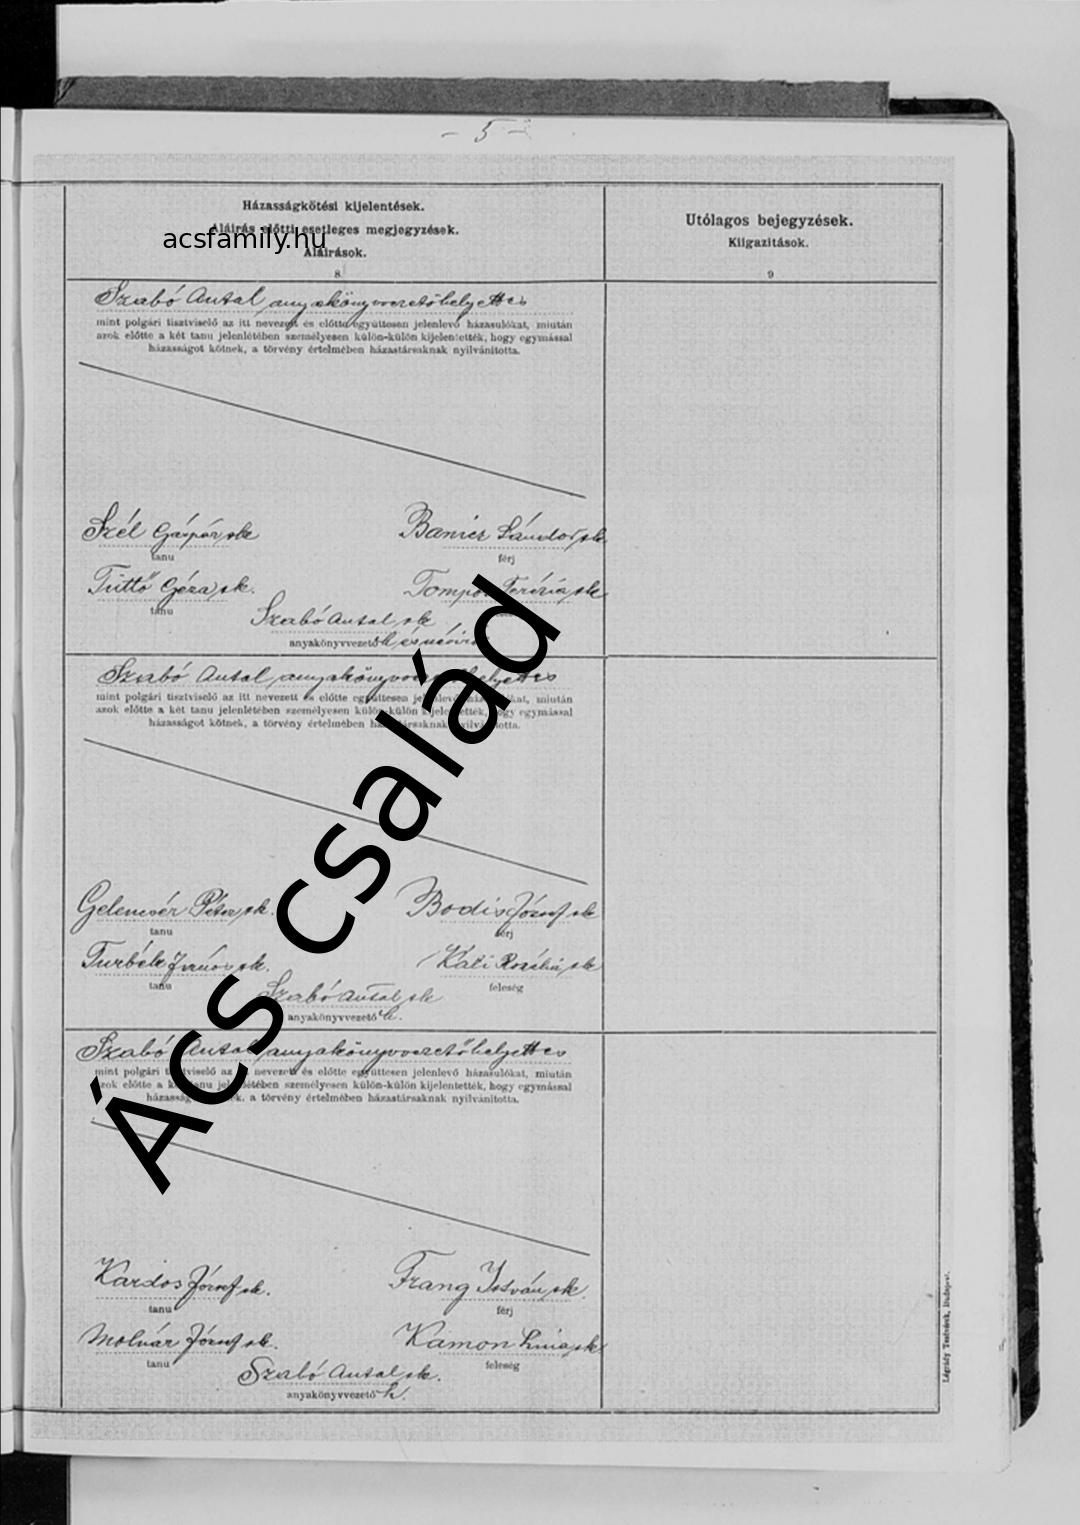 - 5 -
Házasságkötési kijelentések.
Aláírás előtti esetleges megjegyzések.
Aláírások.
8
Utólagos bejegyzések.
Kiigazítások.
9
acsfamily.hu
Szabó Antal anyakönyvvezetőhelyettes
mint polgári tisztviselő az itt nevezett és előtte együttesen jelenlevő házasulókat, miután
azok előtte a két tanu jelenlétében személyesen külön-külön kijelentették, hogy egymással
házasságot kötnek, a törvény értelmében házastársaknak nyilvánította.
Szél Gáspár sk
tanu
Sándor sk.
férj
Tüttő Géza sk.
tanu
Terézia sk
Szabó Antal sk
anyakönyvvezető h
Szabó Antal anyakönyvvezetőhelyettes
mint polgári tisztviselő az itt nevezett és előtte együttesen jelenlevő házasulókat, miután
azok előtte a két tanu jelenlétében személyesen külön-külön kijelentették, hogy egymással
házasságot kötnek, a törvény értelmében házastársaknak nyilvánította.
Gelencsér Péter sk.
tanu
Bodis József sk
férj
János sk.
tanu
Káti Rozália sk
feleség
Szabó Antal sk
anyakönyvvezető h.
Szabó Antal anyakönyvvezetőhelyettes
mint polgári tisztviselő az itt nevezett és előtte együttesen jelenlevő házasulókat, miután
azok előtte a két tanu jelenlétében személyesen külön-külön kijelentették, hogy egymással
házasságot kötnek, a törvény értelmében házastársaknak nyilvánította.
Kardos József sk.
tanu
Frang István sk.
férj
Molnár József sk.
tanu
Kámon sk
feleség
Szabó Antal sk.
anyakönyvvezető h.
Légrády Testvérek, Budapest.
Ács család